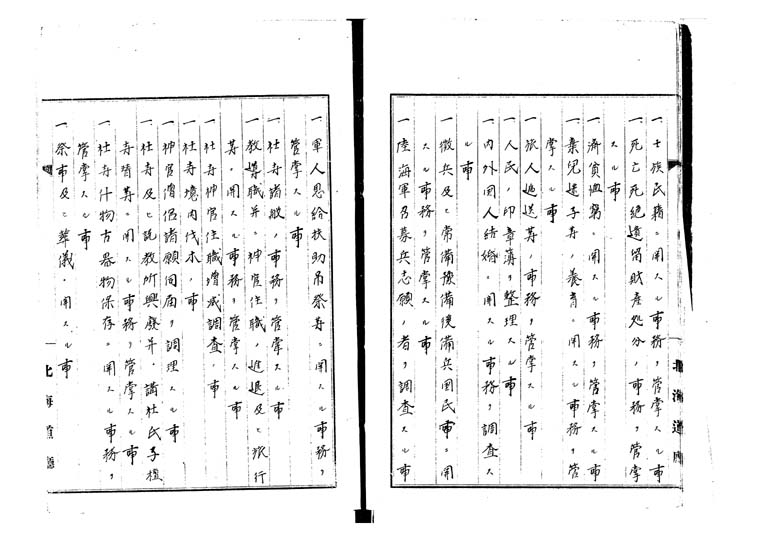 一士族民籍ニ関スル事務ヲ管掌スル事
一死亡死絶遺留財産処分ノ事務ヲ管掌
スル事
一済貧恤窮ニ関スル事務ヲ管掌スル事
一棄児迷子等ノ養育ニ関スル事務ヲ管
掌スル事
一旅人逓送等ノ事務ヲ管掌スル事
一人民ノ印章簿ヲ整理スル事
一内外国人結婚ニ関スル事務ヲ調査ス
ル事
一徴兵及ヒ常備予備後備兵国民軍ニ関
スル事務ヲ管掌スル事
一陸海軍召募兵志願ノ者ヲ調査スル事
北海道庁
一軍人恩給扶助吊祭等ニ関スル事務ヲ
管掌スル事
一社寺諸般ノ事務ヲ管掌スル事
一教導職并ニ神官住職ノ進退及ヒ旅行
等ノ関スル事務ヲ管掌スル事
一社寺神官住職増減調査ノ事
一社寺境内伐木ノ事
一神官僧侶諸願伺届ヲ調理スル事
一社寺及ヒ説教所興廃并ニ講社氏子檀
等ニ関スル事務ヲ管掌スル事
一社寺什物古器物保存ニ関スル事務ヲ
管掌スル事
一祭事及ヒ葬儀ニ関スル事
北海道庁